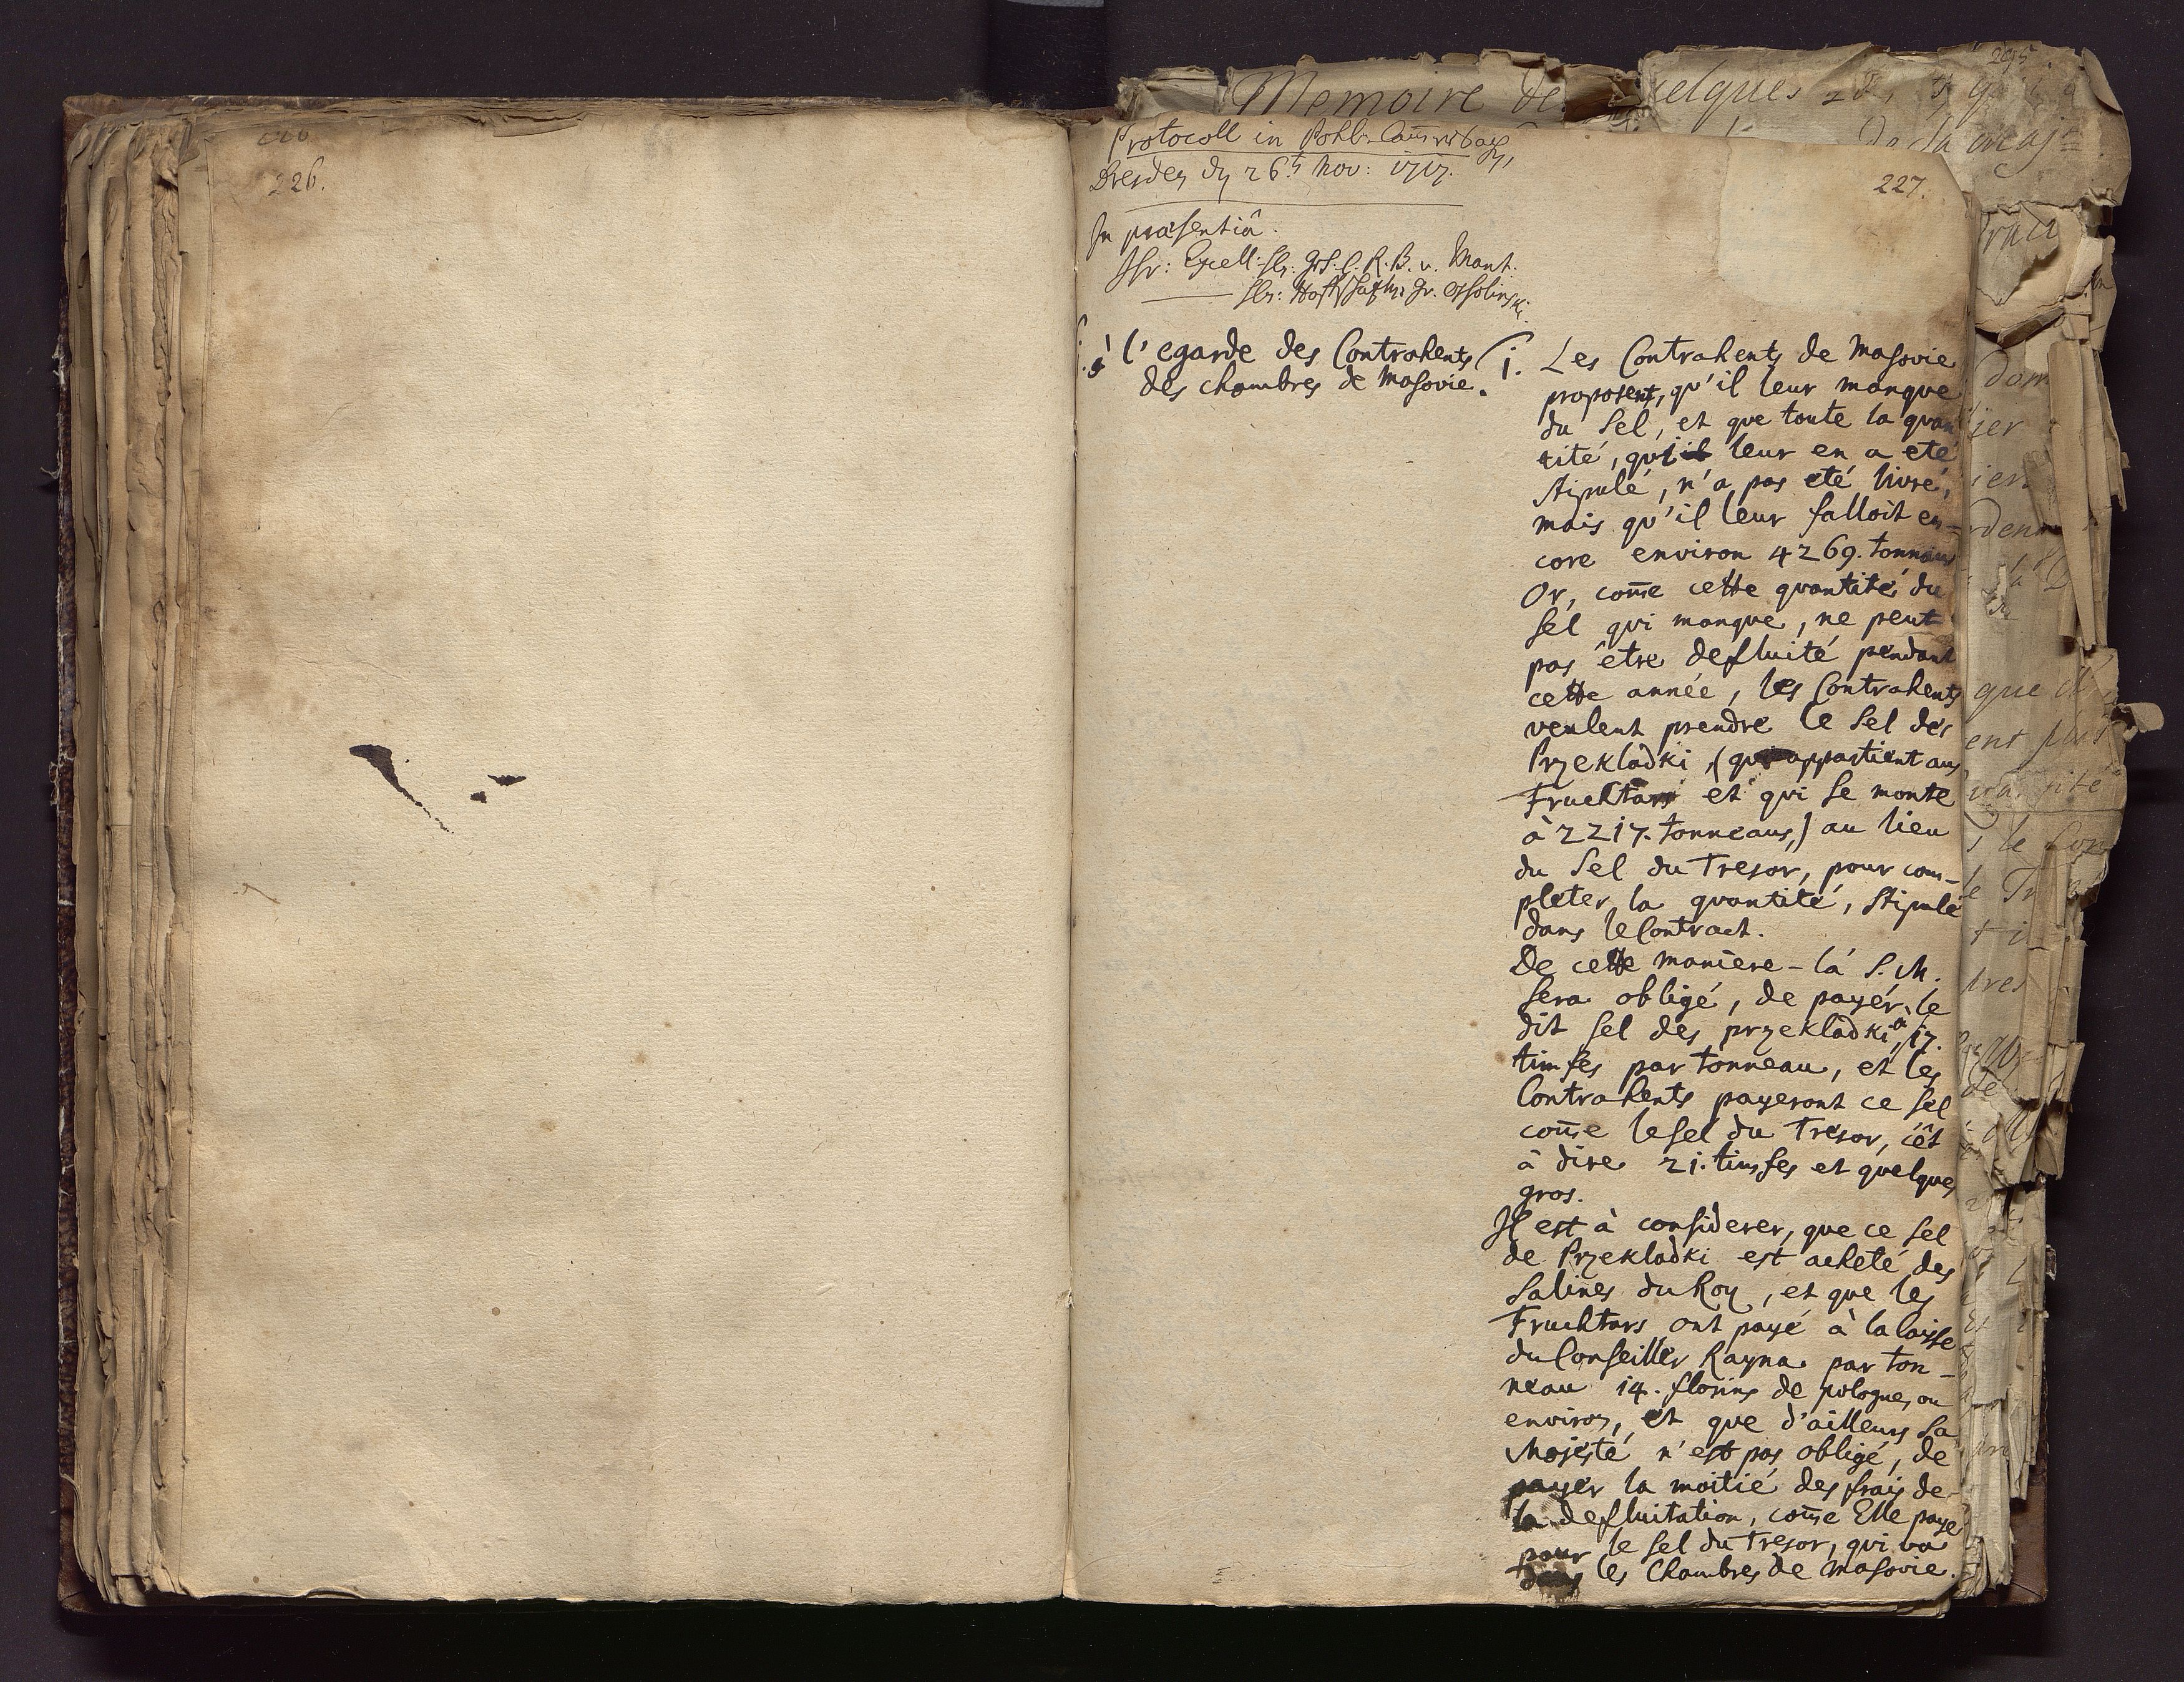 226.
227.
Protocoll in Pohln.
Dresden dn 26t Nov: 1717.
In præsentiâ.
Ihr: Excell: Hr: R. B. v. Mant.
Hr: Gr. Ossolinski.
à l'egarde des Contrahents
des chambres de Masovie.
1. Les Contrahents de Masovie
proposent, qu'il leur manque
du Sel, et que toute la quan
tité, qui leur en a eté
stipulé, n'a pas eté livré,
mais qu'il leur falloit en=
core environ 4269. tonneaus
Or, com̄e cette quantité du
Sel qui manque, ne peut
pas être defluité pendant
cette année, les Contrahents
veulent prendre le Sel des
Przekladki, (qui appartient aus
Fruchtars et qui se monte
à 2217. tonneaus,) au lieu
du Sel du Tresor, pour com-
pleter la quantité, stipulé
dans le Contract.
De cette maniere-là S. M.
sera obligé, de payer le
dit sel des przekladki à 17.
timfes par tonneau, et les
Contrahents payeront ce sel
com̄e le sel du Tresor, c'êt
à dire 21. timfes et quelques
gros.
Il est à considerer, que ce sel
de Przekladki est acheté des
Salines du Roy, et que les
Fruchtars ont payé à la Caisse
du Conseiller Rayna par ton-
neau 14. florins de pologne, ou
environ, et que d'ailleurs Sa
Majesté n'est pas obligé, de
payer la moitié des frais de
la defluitation, com̄e Elle paye
pour le sel du Tresor, qui va
dans les Chambres de Masovie.
Memoire de quelques
295.
de sa maj